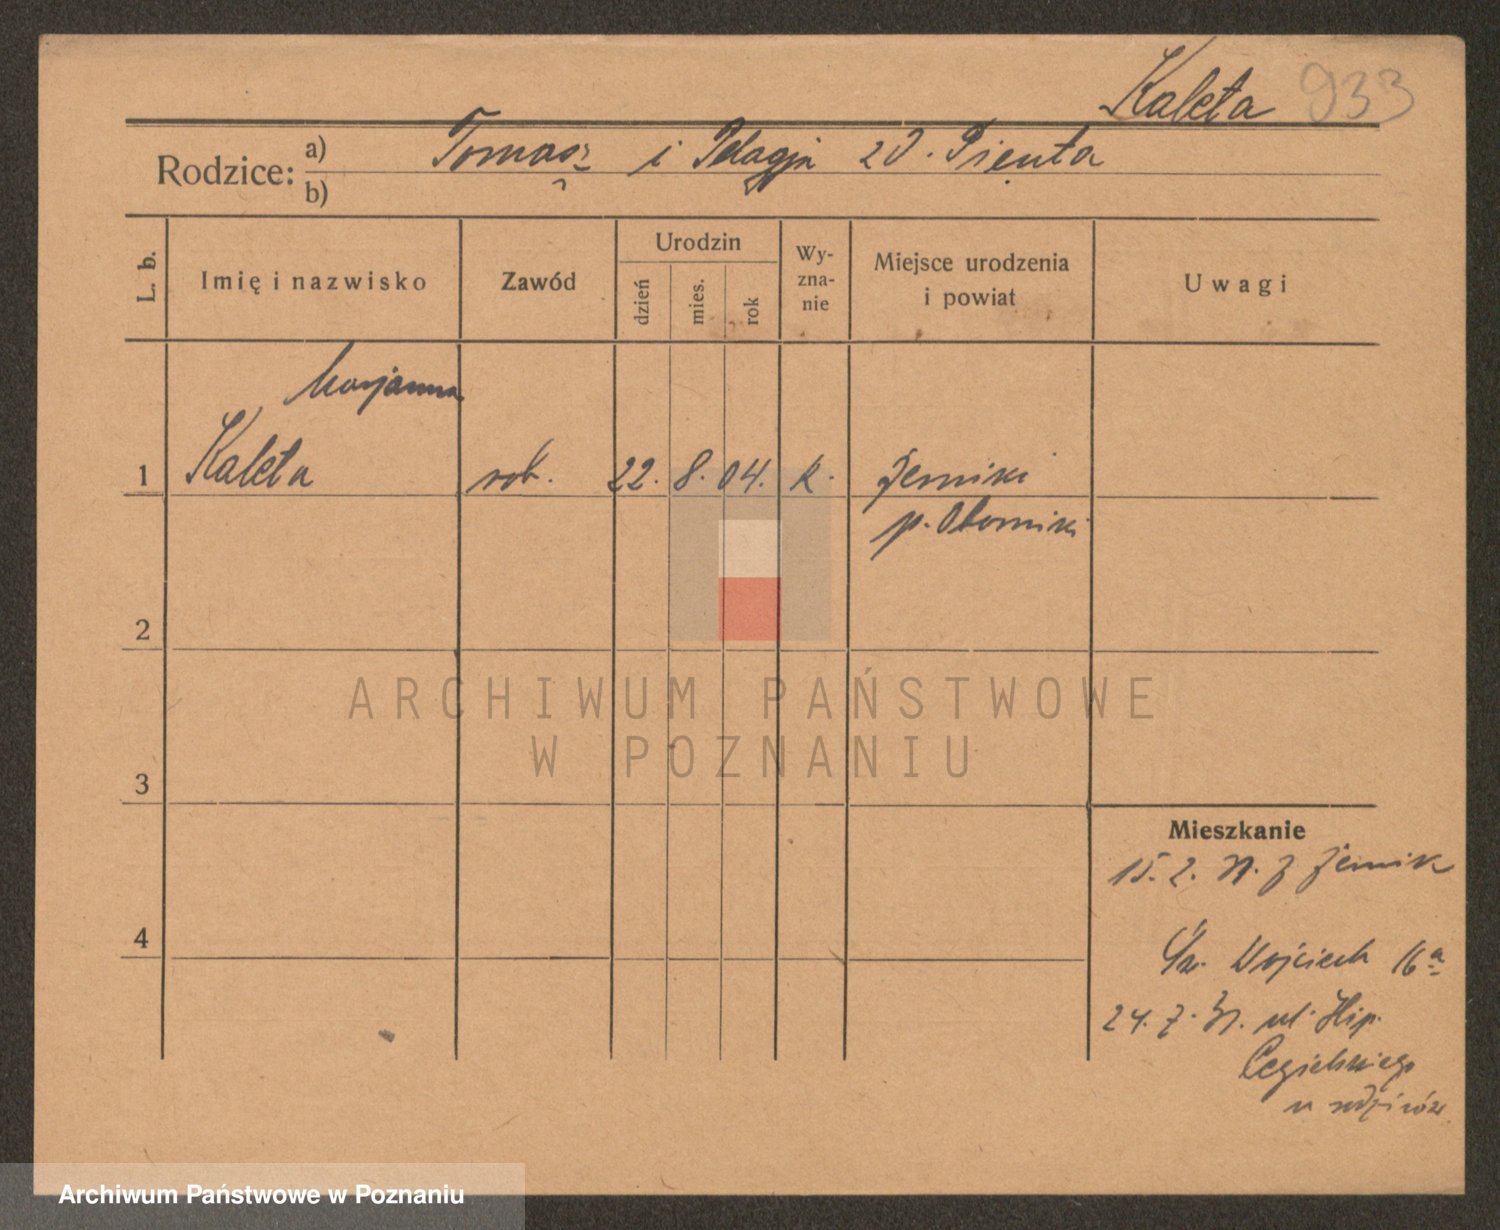 Kaleta 933
Rodzice: a) Tomasz i Pelagja zd. Pienta
b)
L. b.
Imię i nazwisko
Zawód
Urodzin
dzień
mies.
rok
Wy-
zna-
nie
Miejsce urodzenia
i powiat
Uwagi
Marjanna
1 Kaleta rob. 22. 8. 04. k.
p. Oborniki
2
ARCHIWUM PAŃSTWOWE
W POZNANIU
3
Mieszkanie
15. 2. z
4
Św. Wojciech 16a
24. 7. ul. Hip.
Cegielskiego
u rodziców
Archiwum Państwowe w Poznaniu